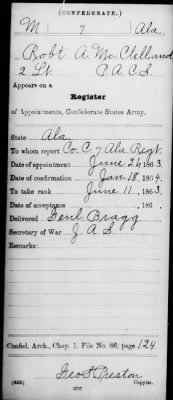 (CONFEDERATE.)
M 7 Ala
Robt A McClelland
2 Lt. P.A.C.S.
Appears on a
Register
of Appointments, Confederate States Army.
State Ala.
To whom report Co. C 7 Ala. Regt.
Date of appointment June 24, 1863.
Date of confirmation Jan. 18, 1864.
To take rank June 11, 1863.
Date of acceptance , 186 .
Delivered Genl Bragg
Secretary of War J. A. S.
Remarks:
Confed. Arch., Chap. 1, File No. 86, page 124
Geo S Preston
(635) Copyist.